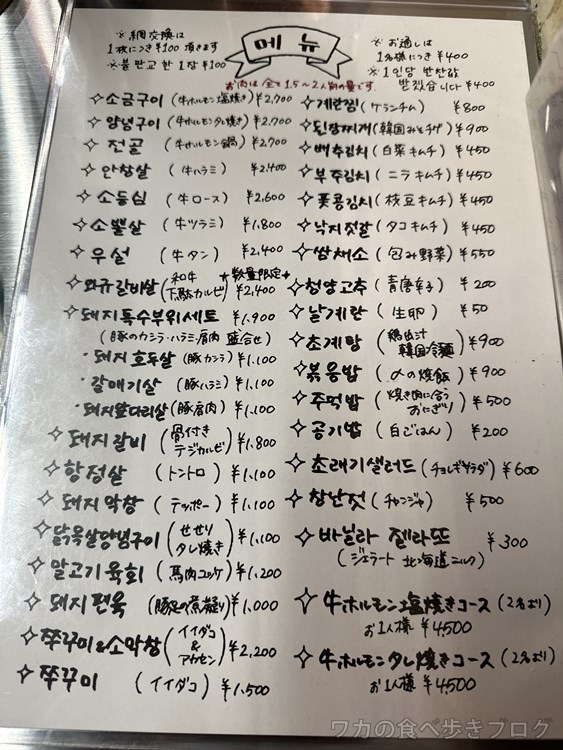 ※網交換は
1枚につき¥100 頂きます
※불판교환 1장 ¥100
메뉴
※お通しは
1名様につき ¥400
※1인당 반찬값
받겠습니다 ¥400
お肉は全て1.5〜2人前の量です
소금구이 (牛ホルモン塩焼き) ¥2,700
양념구이 (牛ホルモンタレ焼き) ¥2,700
전골 (牛ホルモン鍋) ¥2,700
안창살 (牛ハラミ) ¥2,400
소등심 (牛ロース) ¥2,600
소뽈살 (牛ツラミ) ¥1,800
우설 (牛タン) ¥2,400
와규갈비살 (和牛下駄カルビ) ★数量限定★ ¥2,400
돼지특수부위세트 ¥1,900
(豚のカシラ・ハラミ・肩肉 盛合せ)
・돼지호두살 (豚カシラ) ¥1,100
・갈매기살 (豚ハラミ) ¥1,100
・돼지앞다리살 (豚肩肉) ¥1,100
돼지갈비 (骨付きテジカルビ) ¥1,800
항정살 (トントロ) ¥1,100
돼지막창 (テッポー) ¥1,100
닭목살양념구이 (せせりタレ焼き) ¥1,100
말고기육회 (馬肉ユッケ) ¥1,200
돼지편육 (豚足の煮凝り) ¥1,000
쭈꾸미&소막창 (イイダコ&アカセン) ¥2,200
쭈꾸미 (イイダコ) ¥1,500
계란찜 (ケランチム) ¥800
된장찌개 (韓国みそチゲ) ¥900
배추김치 (白菜キムチ) ¥450
부추김치 (ニラキムチ) ¥450
풋콩김치 (枝豆キムチ) ¥450
낙지젓갈 (タコキムチ) ¥450
쌈채소 (包み野菜) ¥550
청양고추 (青唐辛子) ¥200
날계란 (生卵) ¥50
초계탕 (鶏出汁韓国冷麺) ¥900
볶음밥 (〆の焼飯) ¥900
주먹밥 (焼き肉に合うおにぎり) ¥500
공기밥 (白ごはん) ¥200
초래기샐러드 (チョレギサラダ) ¥600
창난젓 (チャンジャ) ¥500
바닐라 젤라또 ¥300
(ジェラート 北海道ミルク)
牛ホルモン塩焼きコース (2名より)
お1人様 ¥4500
牛ホルモンタレ焼きコース (2名より)
お1人様 ¥4500
ワカの食べ歩きブログ